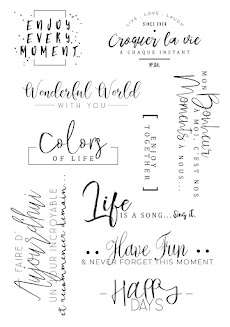 ENJOY
EVERY
MOMENT
LIVE · LOVE · LAUGH
SINCE EVER
Croquer la vie
À CHAQUE INSTANT
Wonderful World
WITH YOU
MON
Bonheur
À MOI, C'EST NOS
Moments
À NOUS...
Colors
OF LIFE
[ ENJOY
TOGETHER ]
À FAIRE D'
Aujourd'hui
UN JOUR INCROYABLE
et recommencer demain...
Life
IS A SONG... Sing it.
Have Fun
& NEVER FORGET THIS MOMENT
Happy
DAYS